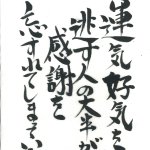 運気好気を
逃す人の大半が
感謝を
忘すれてしまってい